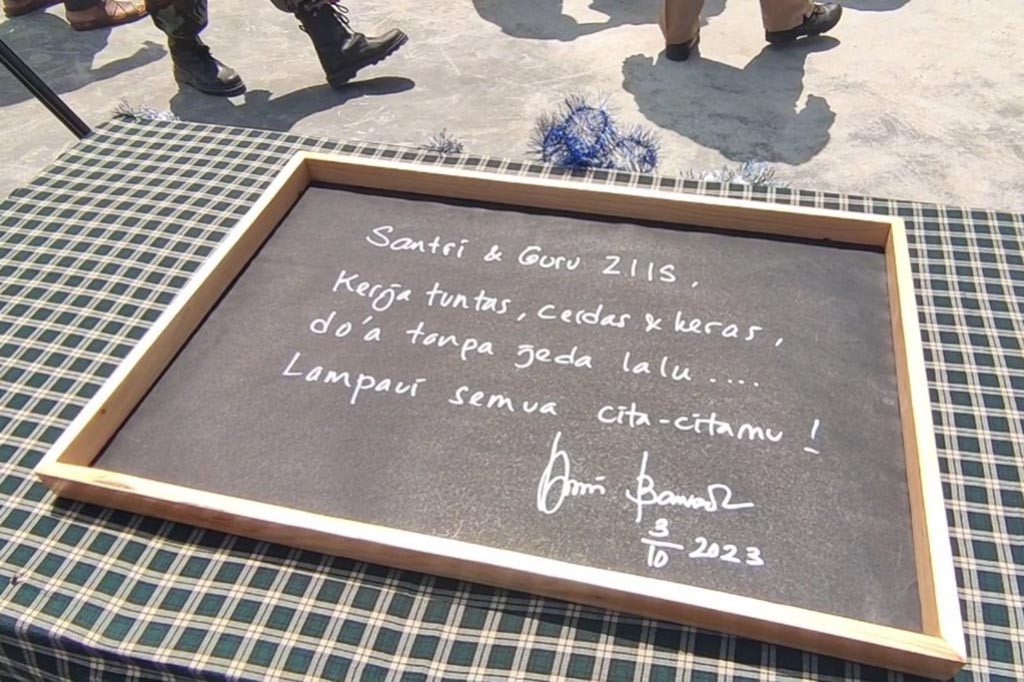 Santri & Guru ZIIS,
Kerja tuntas, cerdas & keras,
do'a tanpa jeda lalu....
Lampaui semua cita-citamu!
3/10 2023